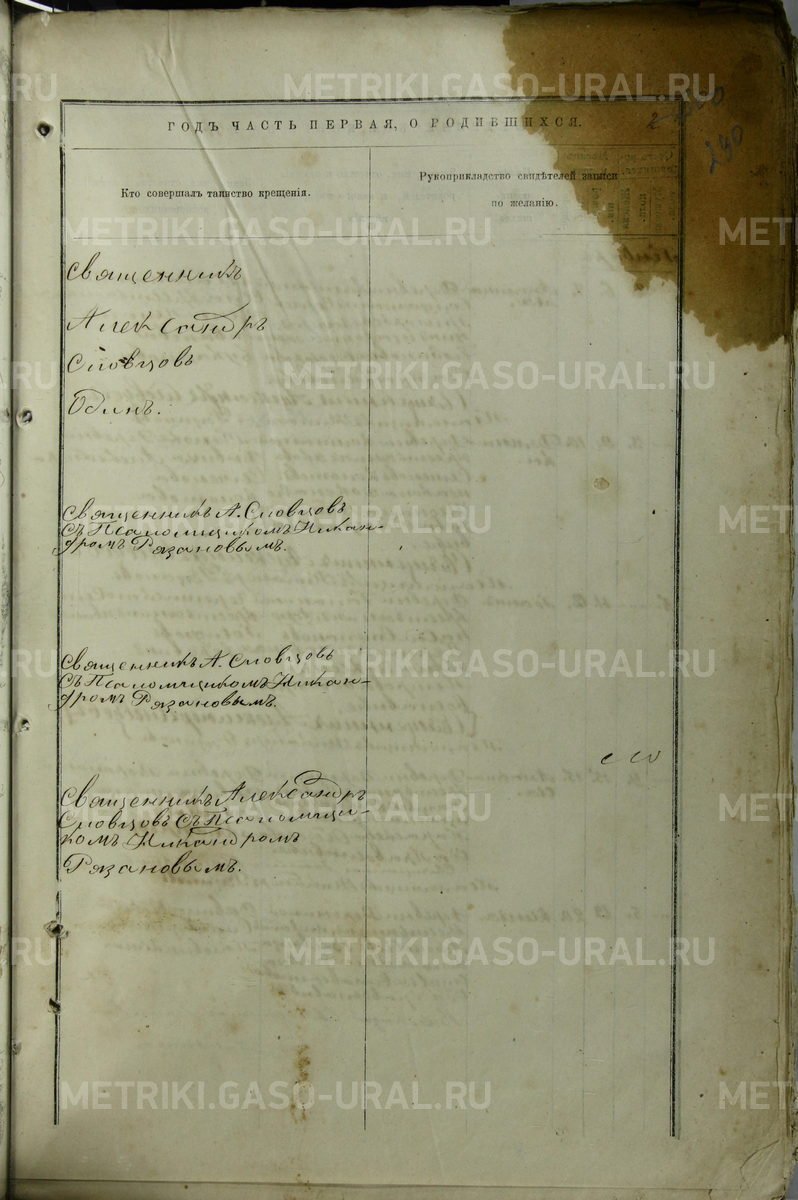 METRIKI.GASO-URAL.RU
ГОДЪ ЧАСТЬ ПЕРВАЯ, О РОДИВШИХСЯ.
2
290
Кто совершалъ таинство крещенія.
Рукоприкладство свидѣтелей записи
по желанію.
Священникъ
Александръ
Словцовъ
Одинъ.
Священникъ А. Словцовъ
съ Псаломщикомъ Никан-
дромъ Рязановымъ.
Священникъ А. Словцовъ
съ Псаломщикомъ Никан-
дромъ Рязановымъ.
Священникъ Александръ
Словцовъ съ Псаломщи-
комъ Никандромъ
Рязановымъ.